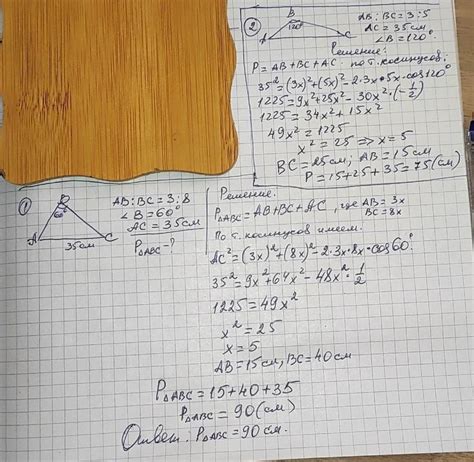 ②
B
120°
A
C
AB:BC=3:5
AC=35см
∠B=120°
Решение:
P=AB+BC+AC по т. косинусов:
35²=(3x)²+(5x)²-2·3x·5x·cos120°
1225=9x²+25x²-30x²·(-1/2)
1225=34x²+15x²
49x²=1225
x²=25 => x=5
BC=25см; AB=15см
P=15+25+35=75(см)
①
B
60°
A
C
35см
AB:BC=3:8
∠B=60°
AC=35см
P△ABC-?
Решение:
P△ABC=AB+BC+AC, где AB=3x
BC=8x
По т. косинусов имеем:
AC²=(3x)²+(8x)²-2·3x·8x·cos60°
35²=9x²+64x²-48x²·1/2
1225=49x²
x²=25
x=5
AB=15см, BC=40см
P△ABC=15+40+35
P△ABC=90(см)
Ответ: P△ABC=90см.